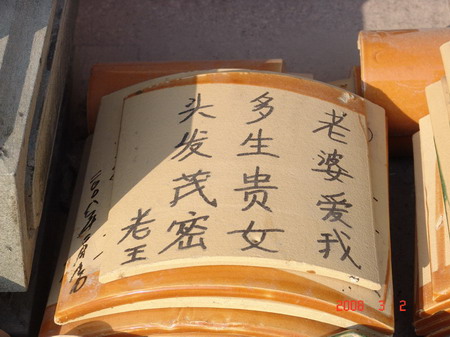 老婆爱我
多生贵女
头发茂密
老王
2008 3 2